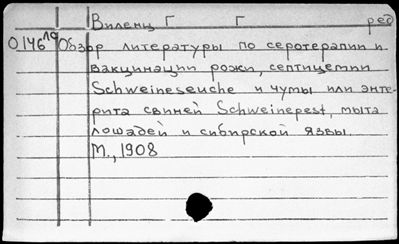 Виленц Г Г ред
0146 10 Обзор литературы по серотерапии и
вакцинации рожи, септицемии
Schweineseuche и чумы или энте-
рита свиней Schweinepest, мыта
лошадей и сибирской язвы.
М., 1908